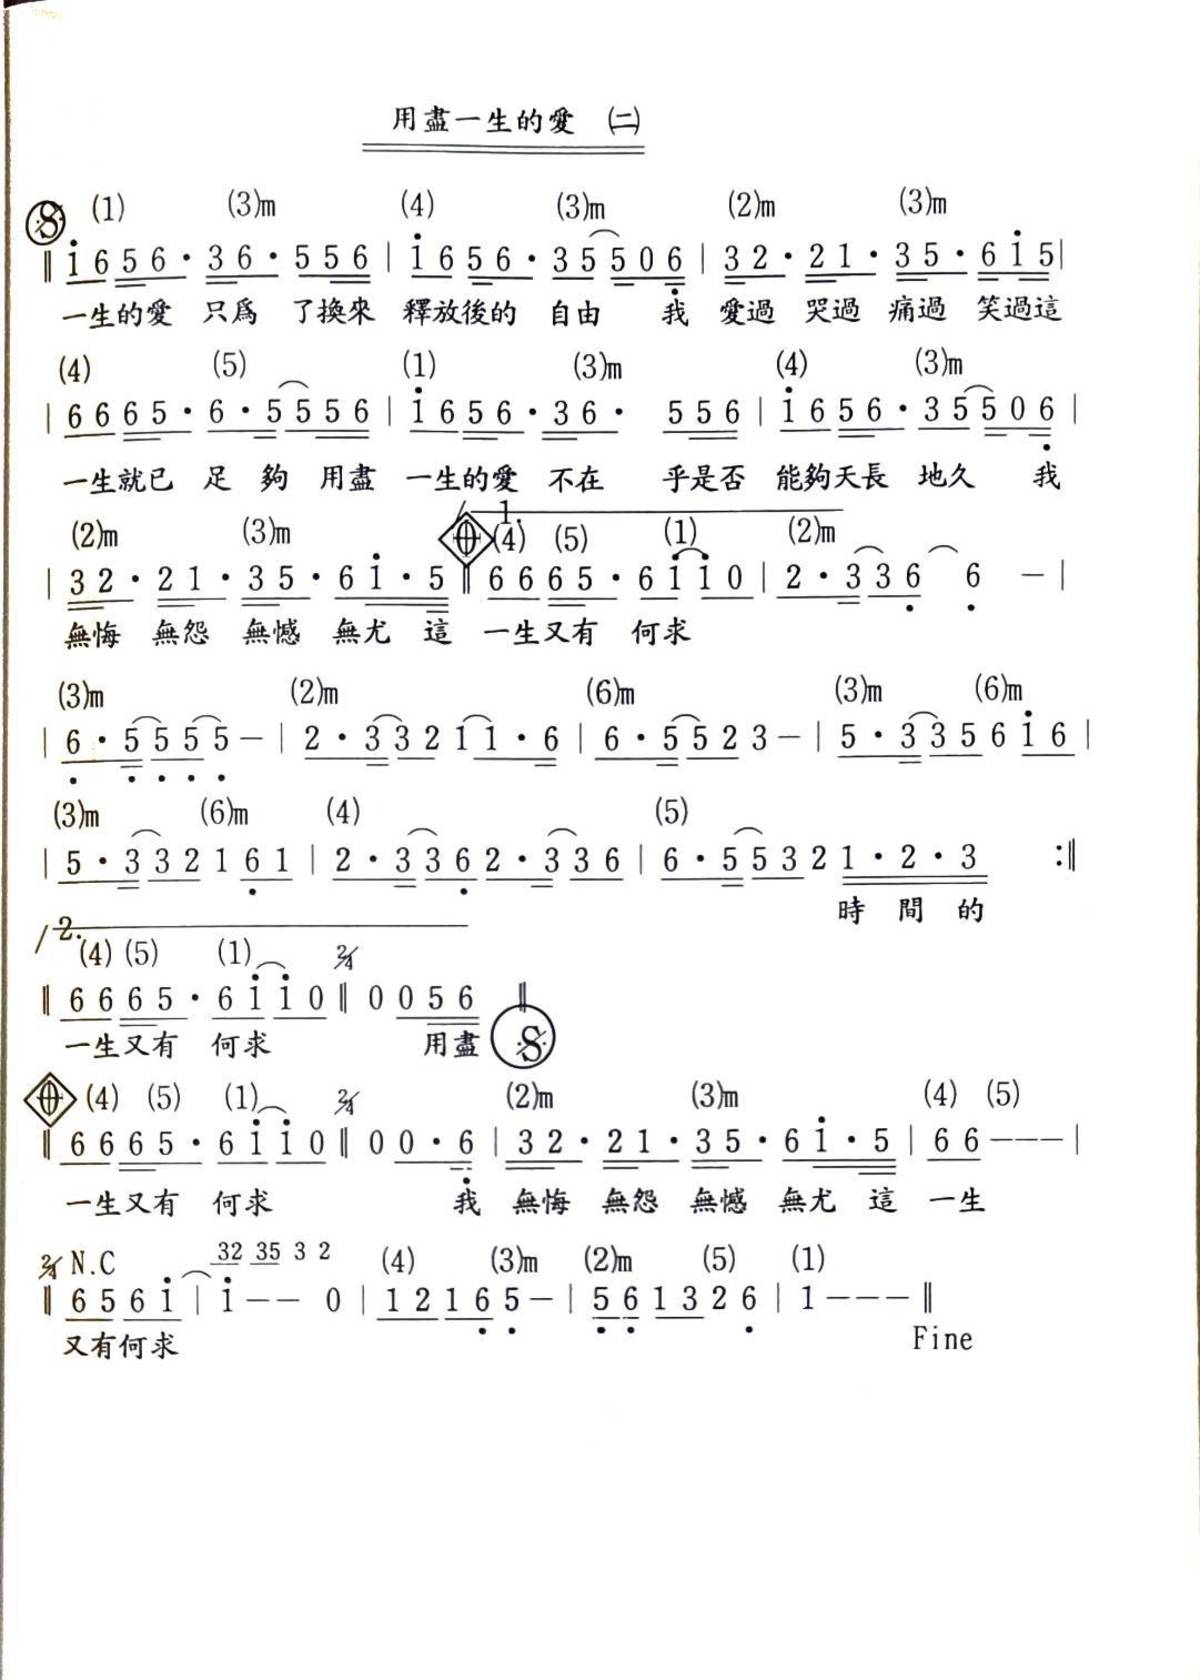 用盡一生的愛 (二)
(1) (3)m (4) (3)m (2)m (3)m
‖ i 6 5 6 · 3 6 · 5 5 6 | i 6 5 6 · 3 5 5 0 6 | 3 2 · 2 1 · 3 5 · 6 i 5 |
一生的愛 只爲 了換來 釋放後的 自由 我 愛過 哭過 痛過 笑過這
(4) (5) (1) (3)m (4) (3)m
| 6 6 6 5 · 6 · 5 5 5 6 | i 6 5 6 · 3 6 · 5 5 6 | i 6 5 6 · 3 5 5 0 6 |
一生就已 足 夠 用盡 一生的愛 不在 乎是否 能夠天長 地久 我
1.
(2)m (3)m (4) (5) (1) (2)m
| 3 2 · 2 1 · 3 5 · 6 i · 5 ‖ 6 6 6 5 · 6 i i 0 | 2 · 3 3 6 6 － |
無悔 無怨 無憾 無尤 這 一生又有 何求
(3)m (2)m (6)m (3)m (6)m
| 6 · 5 5 5 5 － | 2 · 3 3 2 1 1 · 6 | 6 · 5 5 2 3 － | 5 · 3 3 5 6 i 6 |
(3)m (6)m (4) (5)
| 5 · 3 3 2 1 6 1 | 2 · 3 3 6 2 · 3 3 6 | 6 · 5 5 3 2 1 · 2 · 3 :‖
時 間 的
2.
(4) (5) (1) 2/4
‖ 6 6 6 5 · 6 i i 0 ‖ 0 0 5 6 ‖
一生又有 何求 用盡
(4) (5) (1) 2/4 (2)m (3)m (4) (5)
‖ 6 6 6 5 · 6 i i 0 ‖ 0 0 · 6 | 3 2 · 2 1 · 3 5 · 6 i · 5 | 6 6 － － － |
一生又有 何求 我 無悔 無怨 無憾 無尤 這 一生
2/4 N.C 32 35 3 2 (4) (3)m (2)m (5) (1)
‖ 6 5 6 i | i － － 0 | 1 2 1 6 5 － | 5 6 1 3 2 6 | 1 － － － ‖
又有何求 Fine